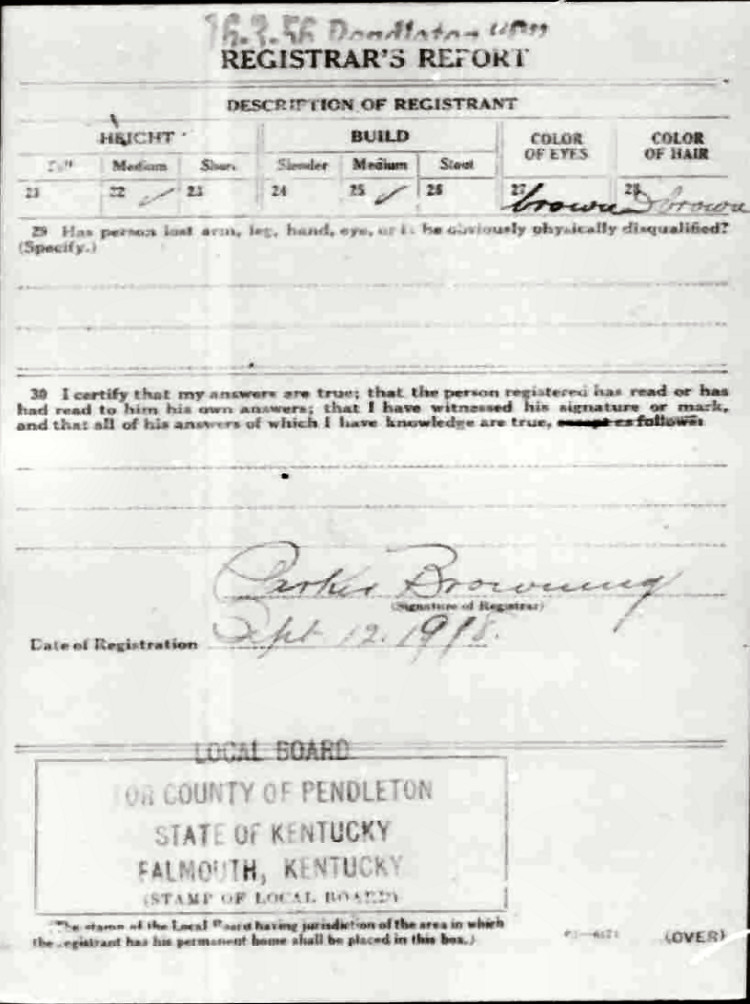 16.3.56 Pendleton
REGISTRAR'S REPORT
DESCRIPTION OF REGISTRANT
HEIGHT BUILD COLOR OF EYES COLOR OF HAIR
Tall Medium Short Slender Medium Stout
21 22 ✓ 23 24 25 ✓ 26 27 brown 28 brown
29 Has person lost arm, leg, hand, eye, or is he obviously physically disqualified?
(Specify.)
30 I certify that my answers are true; that the person registered has read or has
had read to him his own answers; that I have witnessed his signature or mark,
and that all of his answers of which I have knowledge are true, except as follows:
Parker Browning
(Signature of Registrar)
Date of Registration Sept 12. 1918.
LOCAL BOARD
FOR COUNTY OF PENDLETON
STATE OF KENTUCKY
FALMOUTH, KENTUCKY
(STAMP OF LOCAL BOARD)
(The stamp of the Local Board having jurisdiction of the area in which
the registrant has his permanent home shall be placed in this box.)
(OVER)